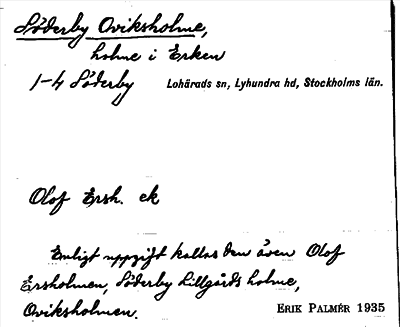 Söderby Oviksholme,
holme i Erken
1-4 Söderby Lohärads sn, Lyhundra hd, Stockholms län.
Olof Ersh. ek
Enligt uppgift kallas den även Olof
Ersholmen, Söderby Lillgårds holme,
Oviksholmen.
ERIK PALMÉR 1935